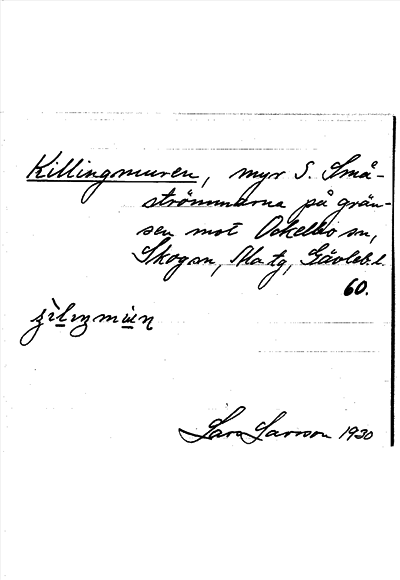 Killingmuren, myr S. Små-
strömmarna på grän-
sen mot Ockelbo sn,
Skog sn, Ala tg, Gävleb. l.
60.
Lars Larsson 1930